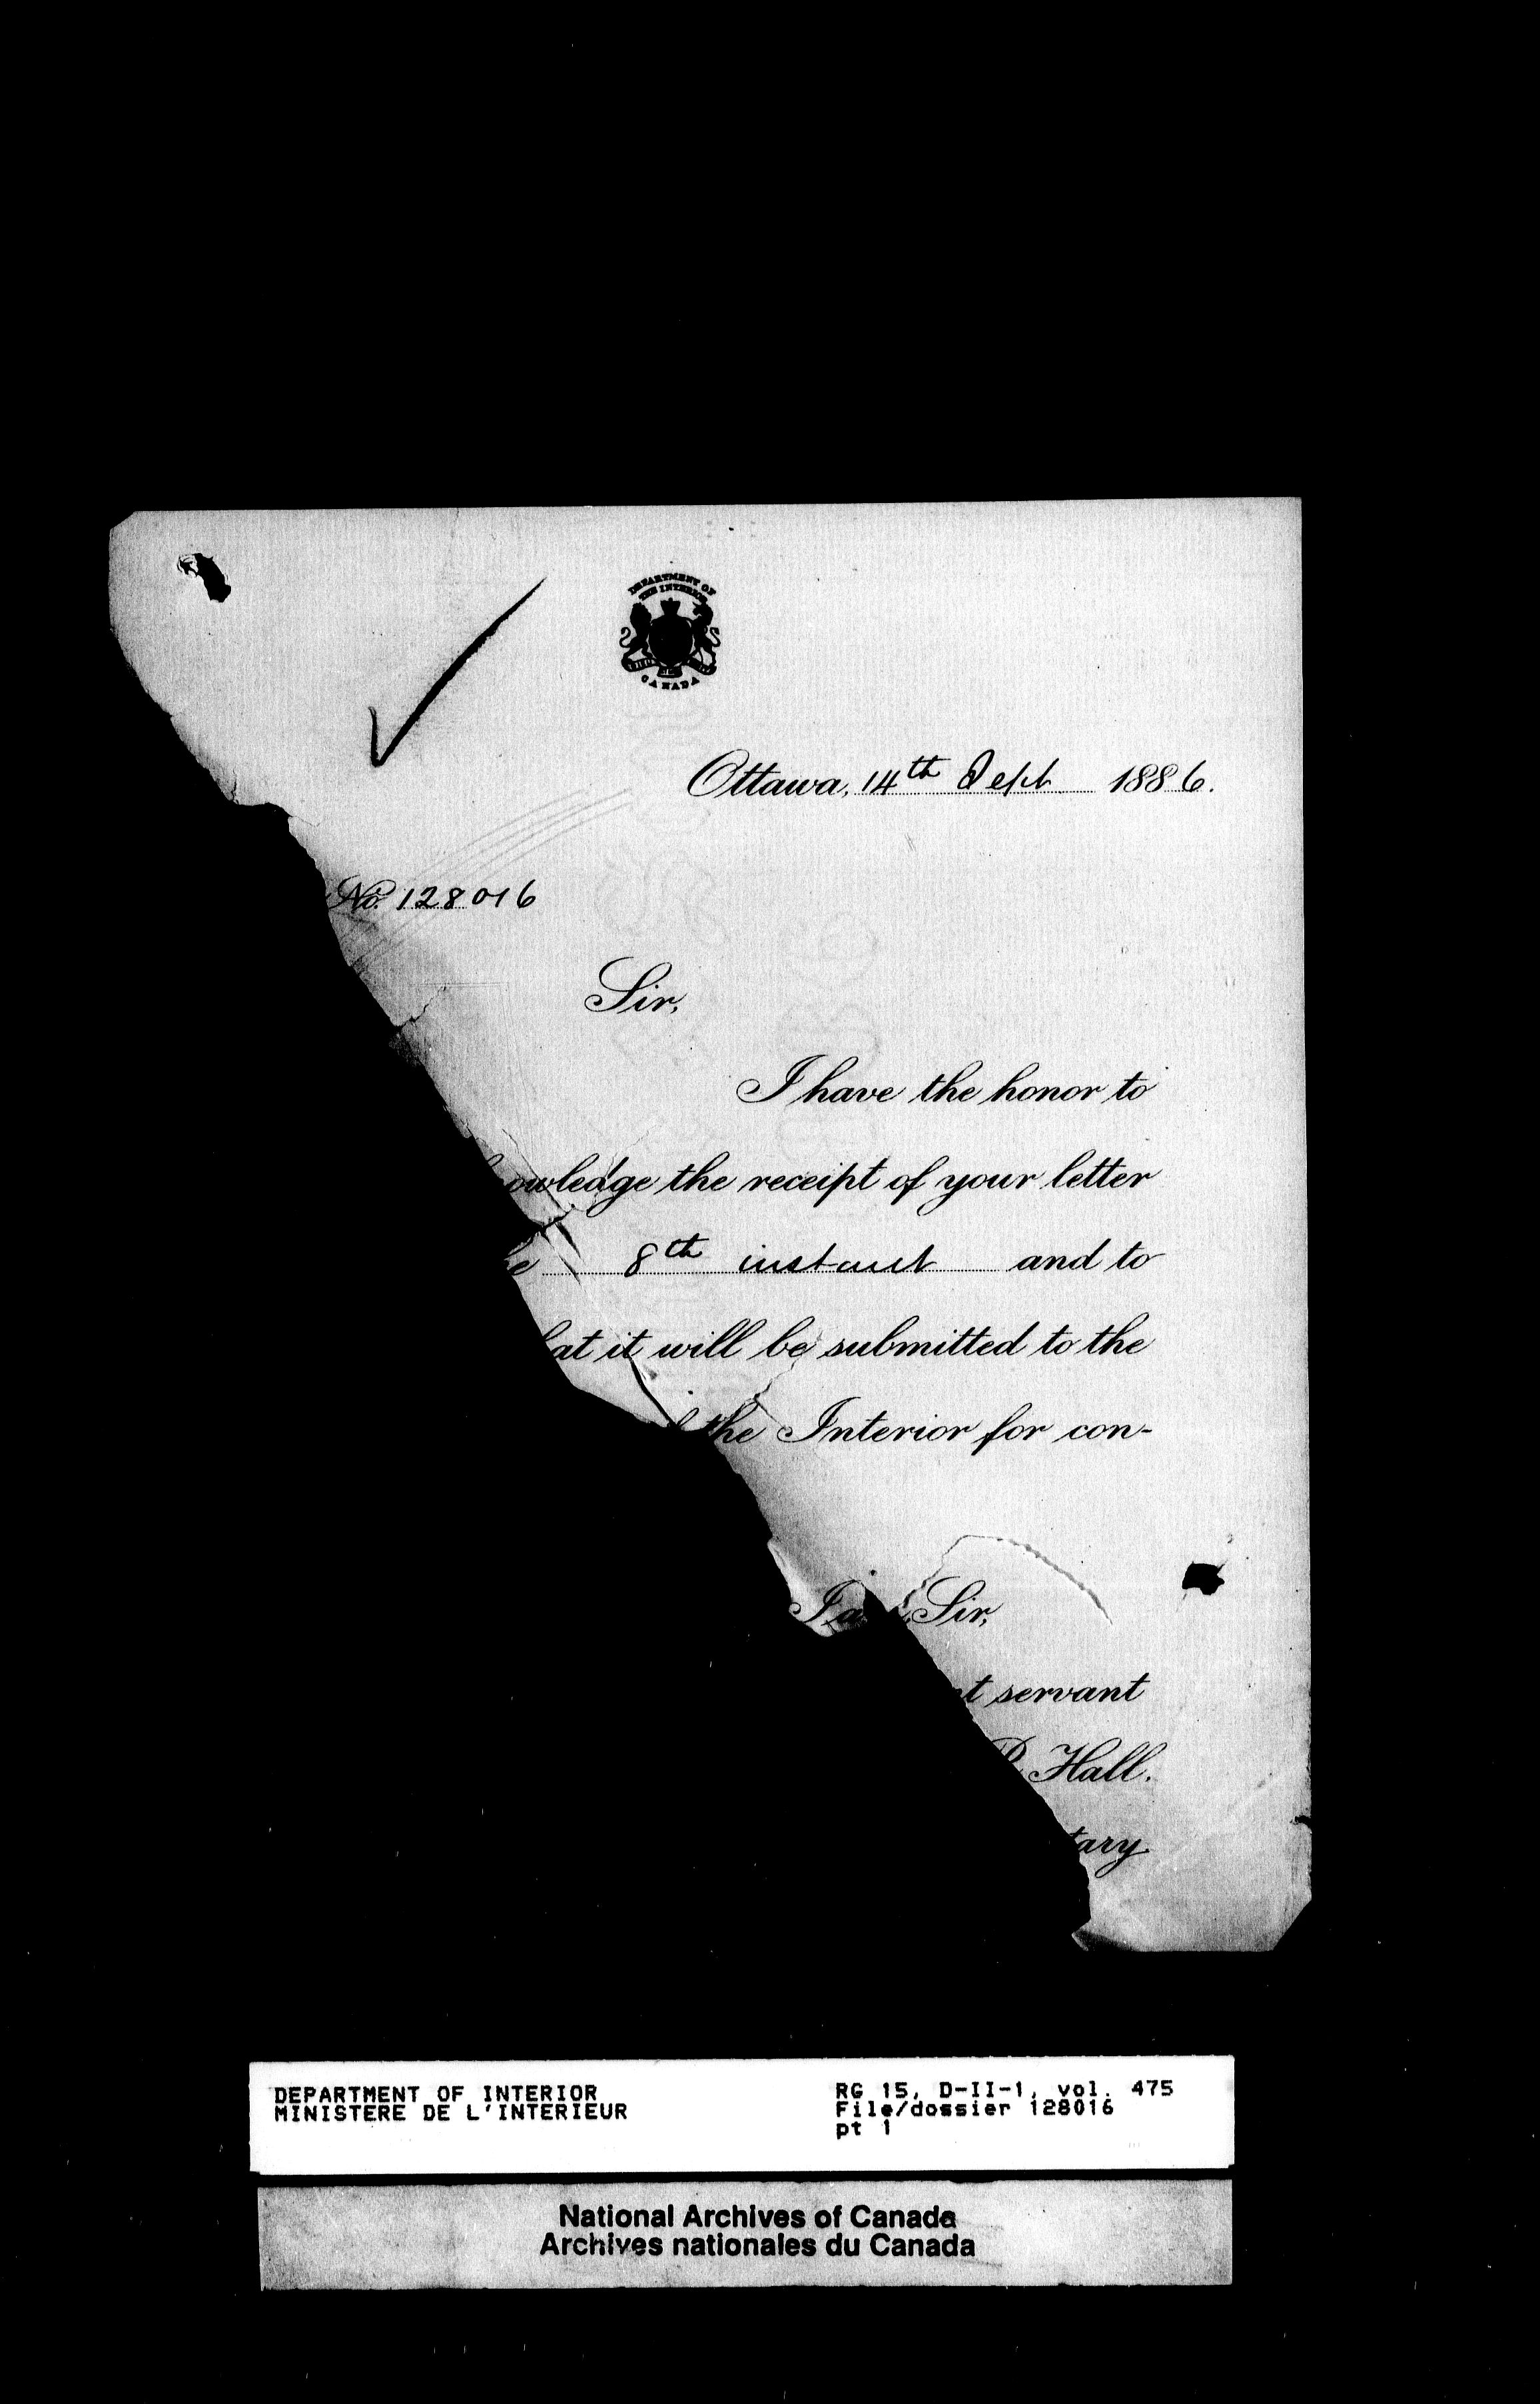 DEPARTMENT OF
THE INTERIOR
CANADA
Ottawa, 14th Sept 1886.
No. 128016
Sir,
I have the honor to
owledge the receipt of your letter
he 8th instant and to
hat it will be submitted to the
the Interior for con-
I a Sir,
t servant
P. Hall.
tary
DEPARTMENT OF INTERIOR
MINISTERE DE L'INTERIEUR
RG 15, D-II-1, vol. 475
File/dossier 128016
pt 1
National Archives of Canada
Archives nationales du Canada